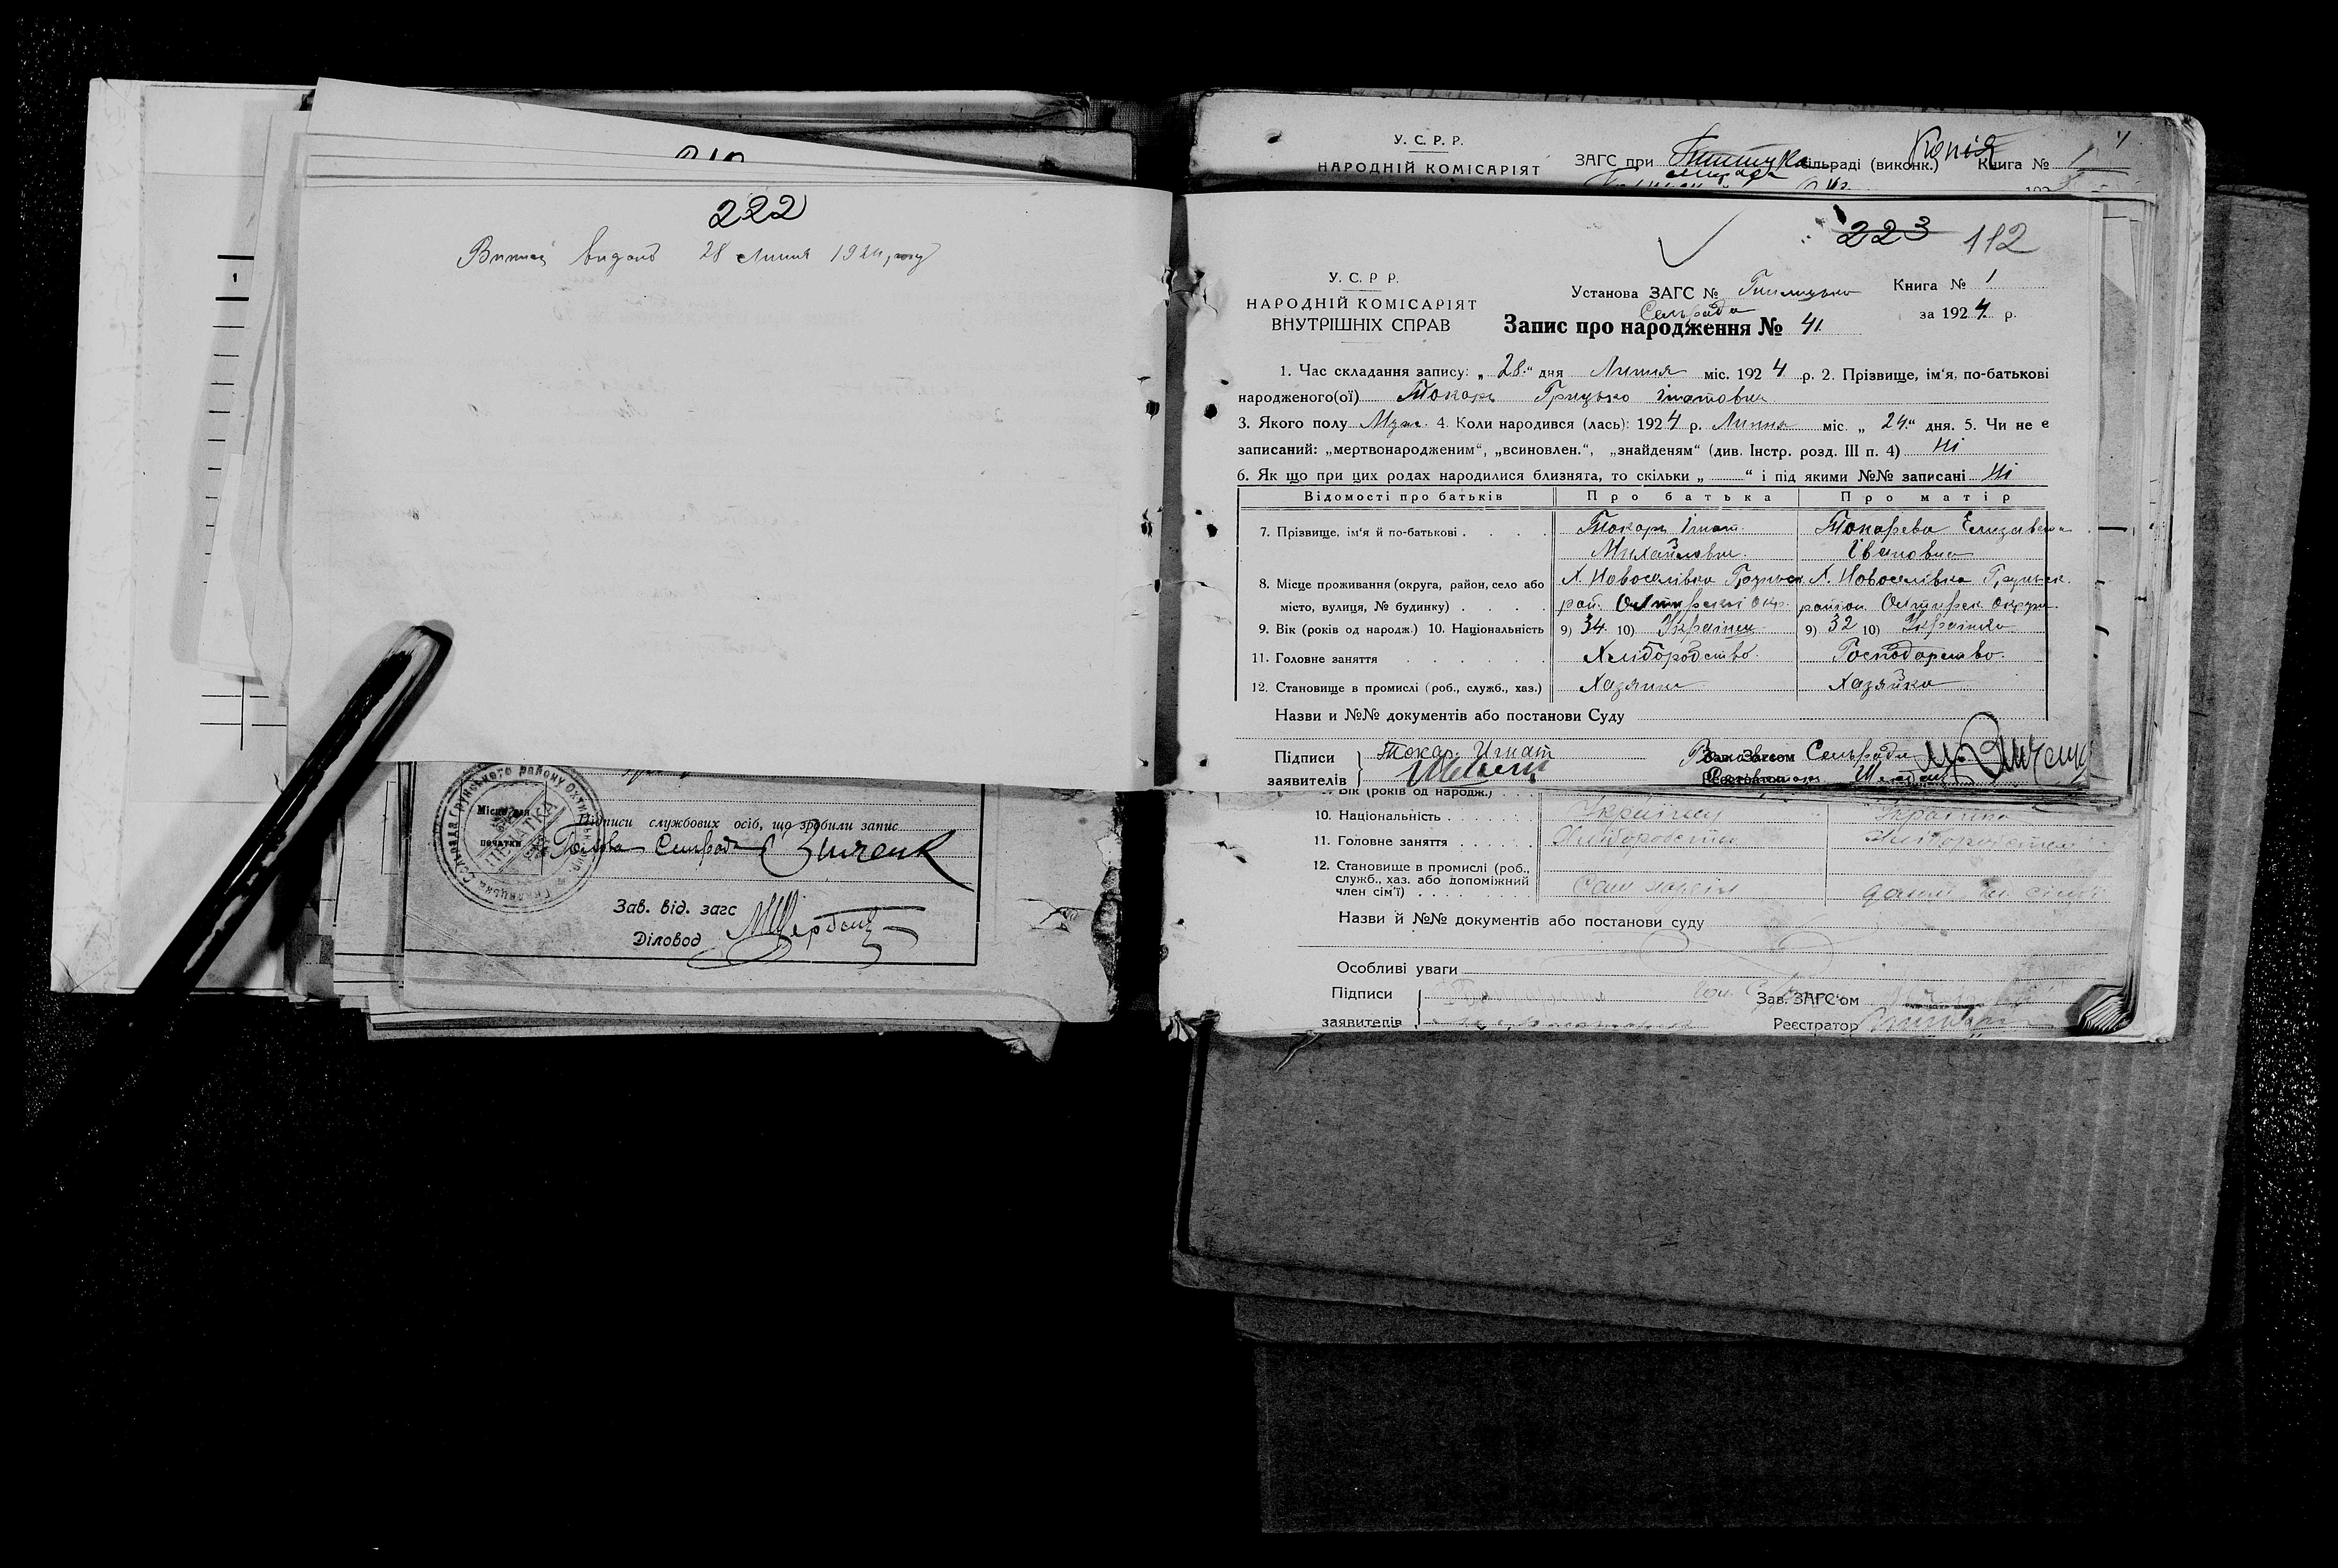 222
Випись видано 28 Липня 1924 року
Підписи службових осіб, що зробили запис
Місце для
печатки
Голова Сельради Зінченк
Зав. від. загс
Діловод
У. С. Р. Р.
НАРОДНІЙ КОМІСАРІЯТ
ЗАГС при сільраді (виконк.) Копія Книга № 1
223 112
У. С. Р Р.
НАРОДНІЙ КОМІСАРІЯТ
ВНУТРІШНІХ СПРАВ
Установа ЗАГС № Гнилицька
Сельрада
Книга № 1
за 1924 р.
Запис про народження № 41.
1. Час складання запису: „ 28 “ дня Липня міс. 1924 р. 2. Прізвище, ім'я, по-батькові
народженого(ої) Токарь Грицько Ігнатович
3. Якого полу Муж. 4. Коли народився (лась): 1924 р. Липня міс. „ 24 “ дня. 5. Чи не є
записаний: „мертвонародженим“, „всиновлен.“, „знайденям“ (див. Інстр. розд. III п. 4) Ні
6. Як що при цих родах народилися близнята, то скільки „ “ і під якими №№ записані Ні
Відомості про батьків Про батька Про матір
7. Прізвище, ім'я й по-батькові Токарь Ігнат Токарева Елизавета
Михайлович Івановна
8. Місце проживання (округа, район, село або Х. Новоселівка Грунськ. Х. Новоселівка Грунськ.
місто, вулиця, № будинку) рай. Охтирської Окр. района Охтирськ. Округи
9. Вік (років од народж.) 10. Національність 9) 34 10) Українец 9) 32 10) Українка
11. Головне заняття Хлібородство. Господарство.
12. Становище в промислі (роб., служб., хаз.) Хазяин Хазяйка
Назви и №№ документів або постанови Суду
Підписи
заявителів
Токар Игнат
Зав. Загсом Сельради
Реєстратор
Вік (років од народж.)
10. Національність Українец Українка
11. Головне заняття Хлібородство
12. Становище в промислі (роб.,
служб., хаз. або допоміжний
член сім'ї)
Назви й №№ документів або постанови суду
Особливі уваги
Підписи
заявителів
Зав. ЗАГС'ом
Реєстратор